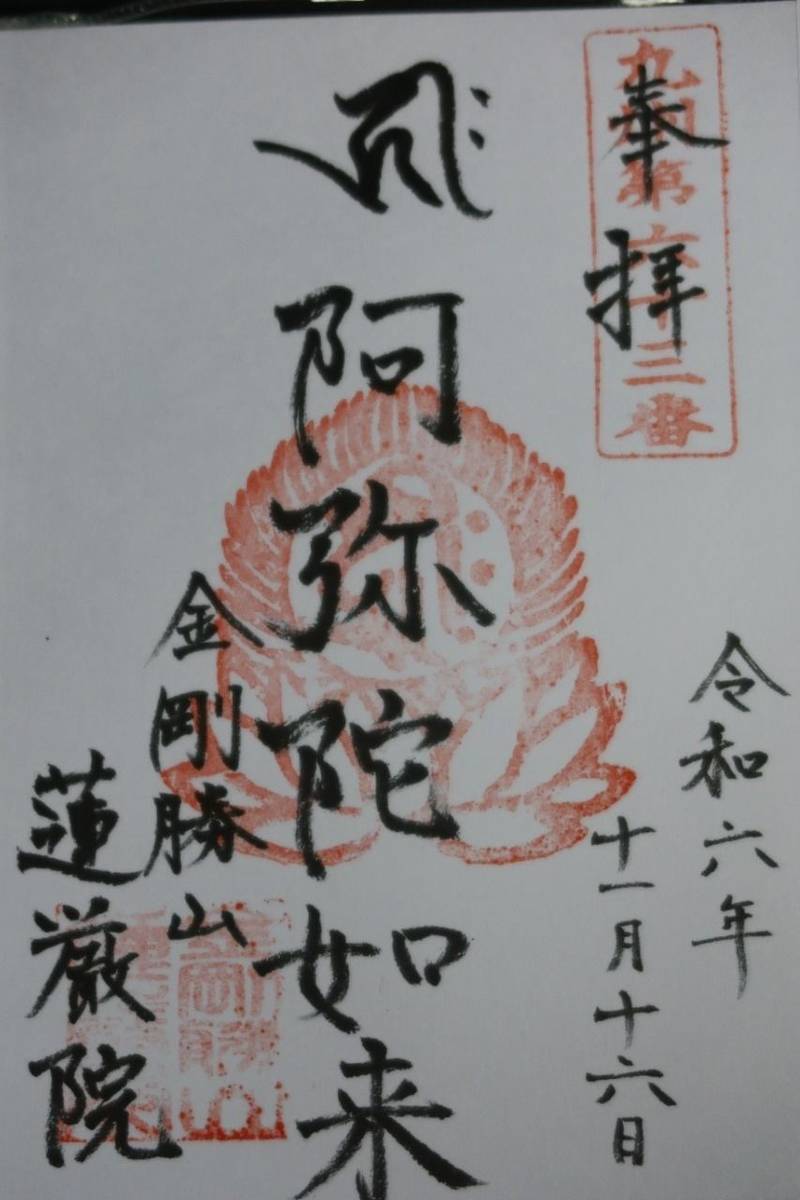 九州第六十三番
奉拝
令和六年
十一月十六日
阿弥陀如来
金剛勝山
蓮厳院